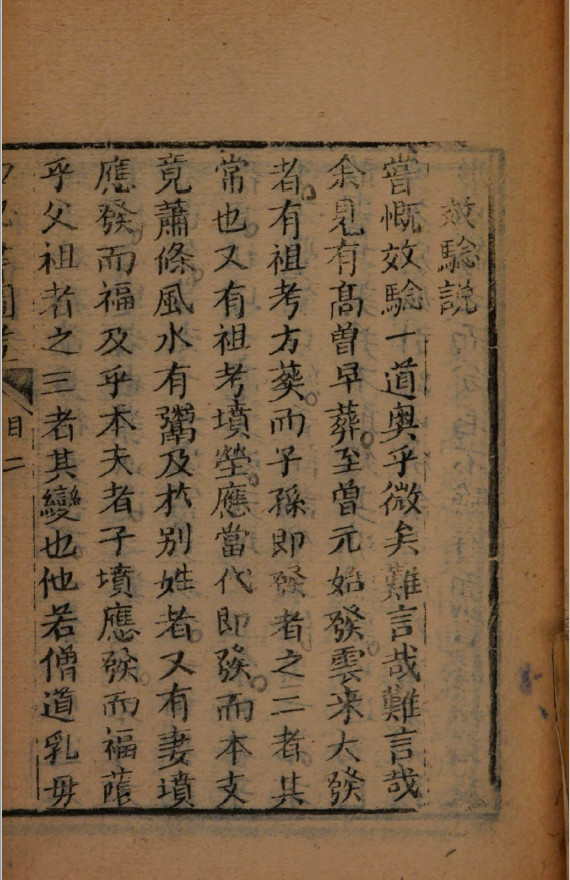 效驗說
嘗慨效驗一道奧乎微矣難言哉難言哉
余見有高曾早葬至曾元始發雲來大發
者有祖考方葬而子孫即發者之二者其
常也又有祖考墳塋應當代即發而本支
竟蕭條風水有鬻及於別姓者又有妻墳
應發而福及乎本夫者子墳應發而福蔭
乎父祖者之三者其變也他若僧道乳母
目二